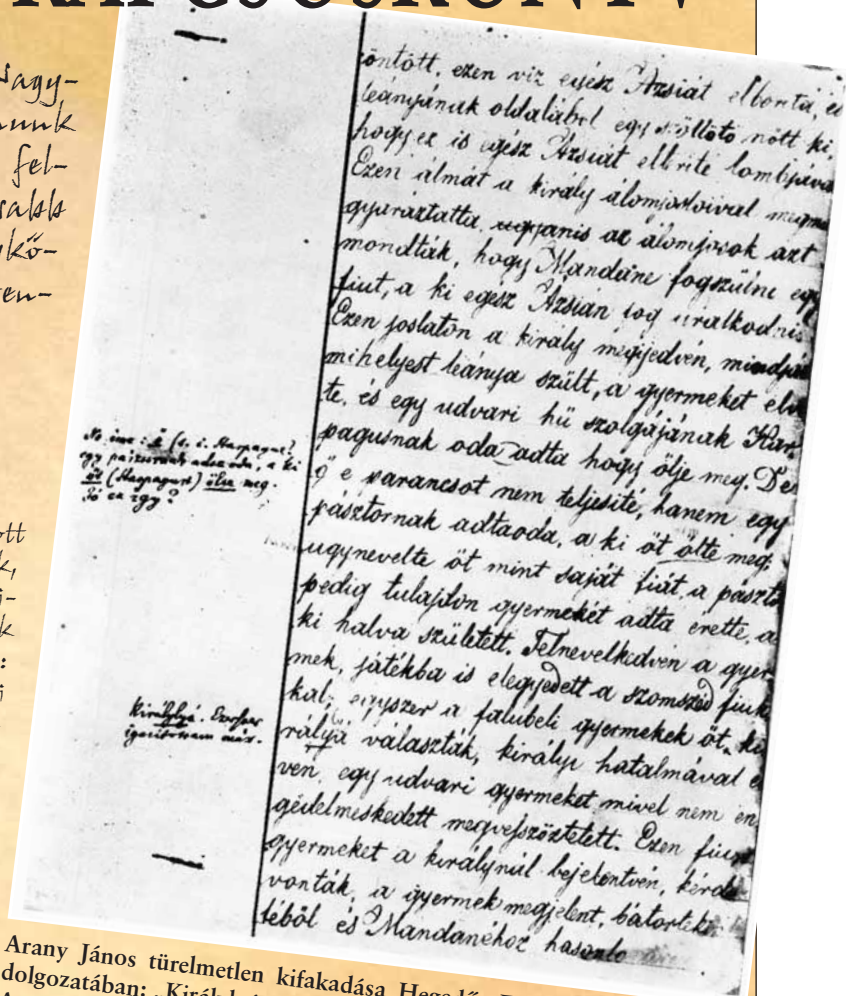 KAPCSOSKÖNYV
fel-
kő-
öntött, ezen viz egész Ázsiát elborítá, és
leányának oldalából egy szőllőtő nőtt ki,
hogy ez is egész Ázsiát lombjáva
Ezen álmát a király álomjósoival megma
gyaráztatta, ugyanis az álomjósok azt
mondták, hogy Mandáne fogszülni egy
fiut, a ki egész Ázsián fog uralkodni
Ezen joslaton a király megijedvén, mindjá
mihelyest leánya szült, a gyermeket elv
te, és egy udvari hü szolgájának Har
pagusnak oda adta hogy ölje meg. De
ő e parancsot nem teljesité, hanem egy
pásztornak adtaoda, a ki öt ölte meg,
ugynevelte öt mint saját fiát, a pászto
pedig tulajdon gyermekét adta erette, a
ki halva született. Felnevelkedvén a gyer
mek, játékba is elegyedett a szomszéd fiuk
kal; egyszer a falubeli gyermekek öt ki
rályá választák, királyi hatalmával é
vén, egy udvari gyermeket mivel nem en
gedelmeskedett megveszöztetett. Ezen fiur
gyermeket a királynál bejelentvén, kérdé
vonták, a gyermek megjelent, bátorteki
téből és Mandanéhoz hasonlo
No ime: ő (t. i. Harpagus)
egy pásztornak adta oda, a ki
őt (Harpagust) ölte meg.
Jó ez igy?
királylyá. Ezerszer
igazitottam már.
Arany János türelmetlen kifakadása
dolgozatában: